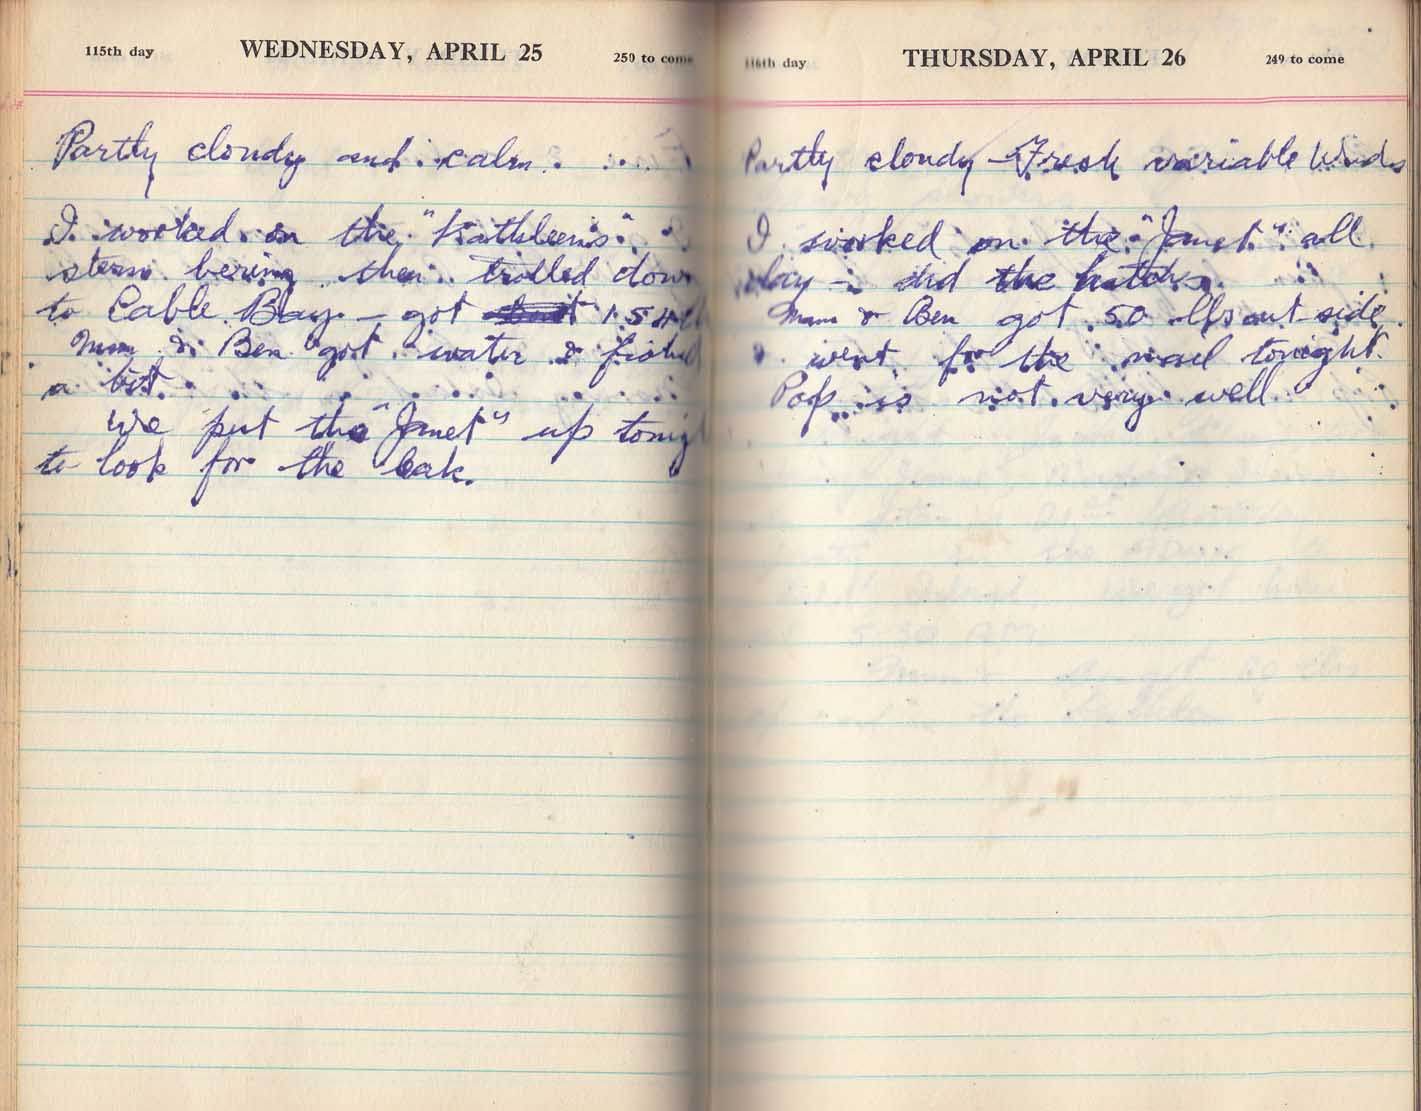 115th day WEDNESDAY, APRIL 25 250 to come
Partly cloudy and calm.
I worked on the "Kathleen's"
stern bering then trolled down
to Cable Bay – got 15
Mum & Ben got water & fished
a bit.
We put the "Janet" up
to look for the leak.
116th day THURSDAY, APRIL 26 249 to come
Partly cloudy – Fresh variable Winds
I worked on the "Janet" all
day – did the hatch
Mum & Ben got 50 lbs out side
went for the mail tonight.
Pop is not very well.